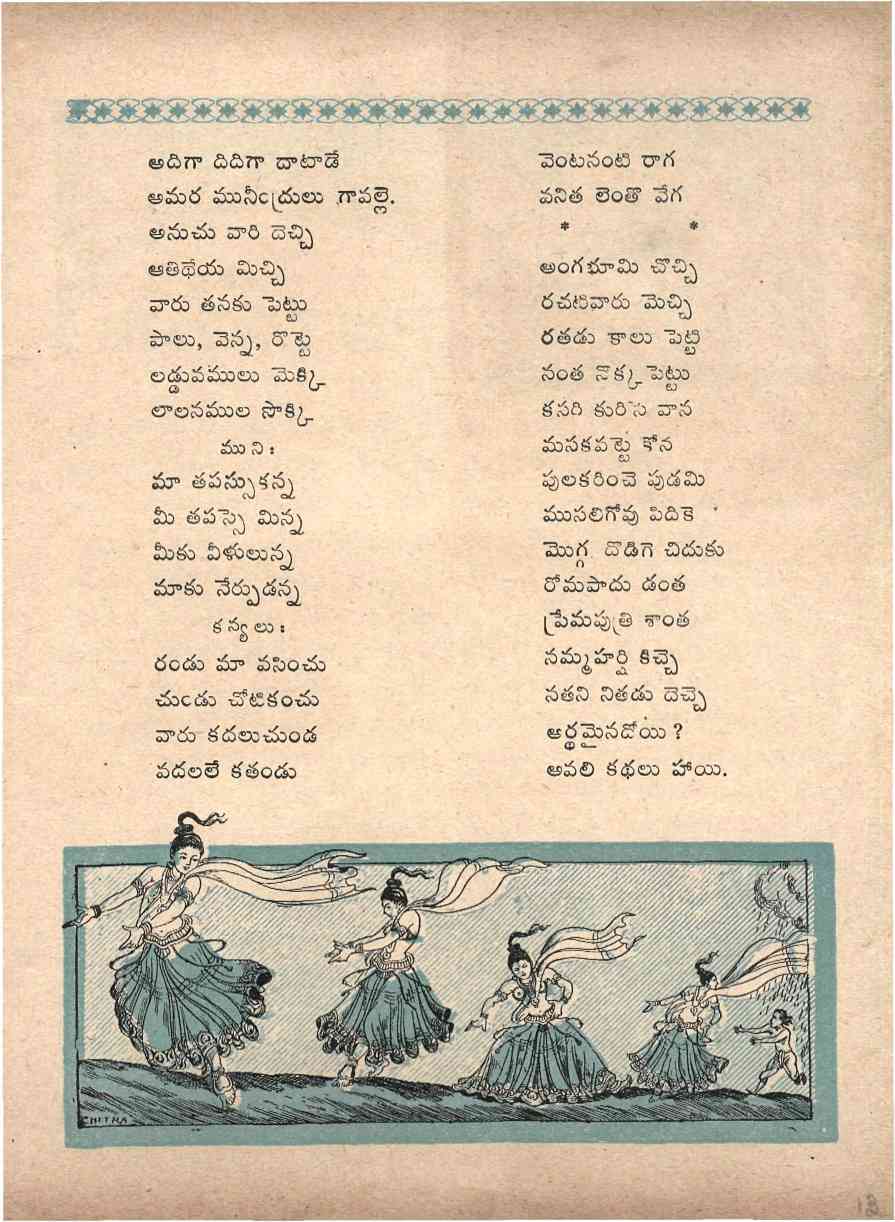 అదిగా దిదిగా దాటాడే
అమర మునీఁద్రులు గావల్లె.
అనుచు వారి దెచ్చి
ఆతిథేయ మిచ్చి
వారు తనకు పెట్టు
పాలు, వెన్న, రొట్టె
లడ్డువములు మెక్కి
లాలనముల సొక్కి
ముని :
మా తపస్సుకన్న
మీ తపస్సె మిన్న
మీకు వీళులున్న
మాకు నేర్పుడన్న
కన్యలు :
రండు మా వసించు
చుఁడు చోటికంచు
వారు కదలుచుండ
వదలలే కతండు
వెంటనంటి రాగ
వనిత లెంతొ వేగ
* *
అంగభూమి చొచ్చి
రచటివారు మెచ్చి
రతడు కాలు పెట్టి
నంత నొక్క పెట్టు
కసరి కురిసె వాన
మసకపట్టె కోన
పులకరించె పుడమి
ముసలిగోవు పిదికె
మొగ్గ దొడిగె చిదుకు
రోమపాదు డంత
ప్రేమపుత్రి శాంత
నమ్మహర్షి కిచ్చె
నతని నితడు దెచ్చె
అర్థమైనదోయి ?
అవలి కథలు హాయి.
CHITRA